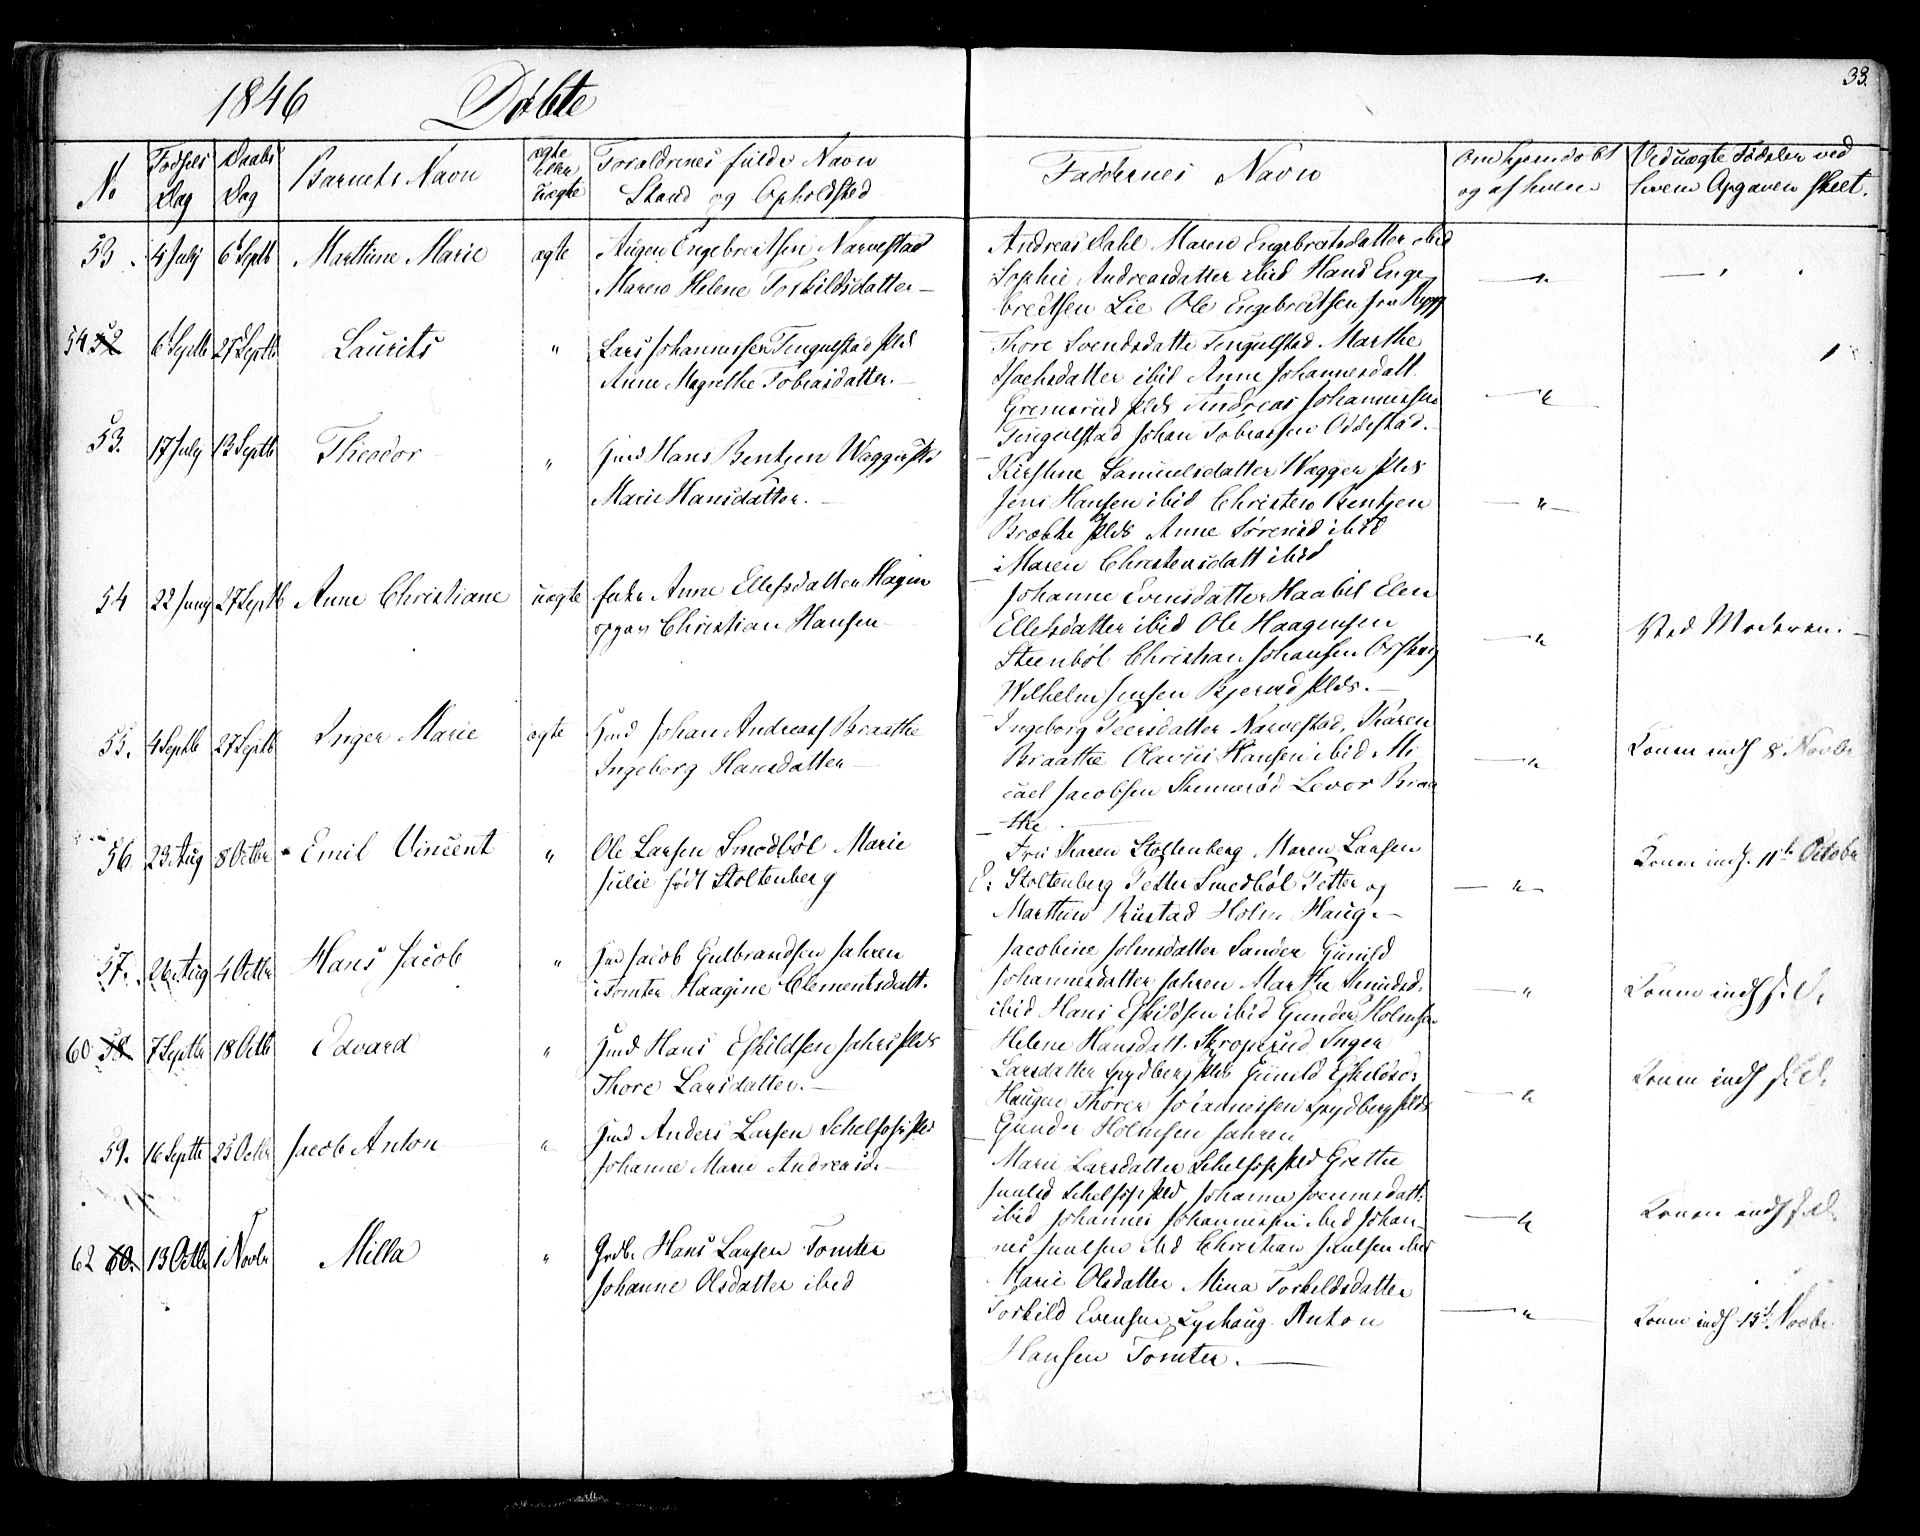 1846 Døbte
33.
No
Fødsels Dag
Daabs Dag
Barnets Navn
ægte eller uægte
Forældrenes fulde Navn
Stand og Opholdsted
Faddernes Navn
om hjemdøbt
og af hvem
Ved uægte Fødsler ved
hvem Opgaven skeet.
53. 4 July 6 Septb Marthine Marie ægte Engebrethsen Narvestad
Maren Helene Torkildsdatter —
Andreas Dahl Maren Engebretsdatter ibid
Sophie Andreasdatter ibid Hans Enge
bredtsen Lie Ole Engebredtsen
54 52 6 Septb 27 Septb Laurits " Lars Johannessen Tingulstad Plds
Anne Magrethe Tobiasdatter. —
Thore Svendsdatter Tingulstad Marthe
Isachsdatter ibid Anne Johannesdatt
Gremerud Plds Andreas Johannessen
Tingulstad Johan Tobiassen Oddestad.
53. 17 July 13 Septb Theodor " Hmd Hans Bentzen Wagger Plds
Marie Hansdatter. —
Kirstine Samuelsdatter Wagger Plds
Jens Hansen ibid Christen Bentzen
Brække Plds Anne Sørensd ibid
Maren Christensdatt ibid
54 22 Juny 27 Septb Anne Christiane uægte Anne Ellefsdatter Hagen
opgav Christian Hansen —
Johanne Evensdatter Haabil Elen
Ellefsdatter ibid Ole Haagensen
Steenbøl Christian Johansen
Wilhelm Jensen Bjerud Plds. —
Ved Moderen. —
55. 4 Septb 27 Septb Inger Marie ægte Hmd Johan Andreass Braathe
Ingeborg Hansdatter —
Ingeborg Peersdatter Narvestad, Karen
Braathe Olavus Hansen ibid Mi
cael Jacobsen Skinnerød Levor Braa
the
Konen indl 8 Novbr
56 23 Aug 8 Octbr Emil Vincent " Ole Larsen Smedbøl Marie
Julie født Stoltenberg
Fru Karen Stoltenberg Maren Larsen
E: Stoltenberg Petter Smedbøl Petter og
Marthin Rustad Holm Haug. —
Konen indl. 11te Octobr
57. 26 Aug 4 Octbr Hans Jacob " Hmd Jacob Gulbrandsen Jahren
Tomter Haagine Clementsdatt.
Jacobine Johnsdatter Sander Gunild
Johannesdatter Jahren Marthe Knudsd.
ibid Hans Eskildsen ibid Gunder Holmsen
Konen indl s. D.
60 58 7 Septbr 18 Octb Edvard " Hmd Hans Eskildsen Jahr Plds
Thore Larsdatter. —
Helene Hansdatt. Skroperud Inger
Larsdatter Spydberg Plds Gunild Eskilds:
Haugen Thorer Johannessen Spydberg Plds
Gunder Holmsen Jahren
Konen indl s. D.
59. 16 Septb 25 Octbr Jacob Anton " Hmd Anders Larsen Schelfos Plds
Johanne Marie Andreasd. —
Marie Larsdatter Schelfos Plds Grethe
Juulsd Schelfos Plds Johanne
ibid Johannes Johannessen ibid Johan
nes Juulsen ibid Christian Juulsen ibid
Konen indl s. d.
62 60. 13 Octbr 1 Novbr Milla " Grdbr Hans Larsen Tomter
Johanne Olsdatter ibid
Marie Olsdatter Mina Torkildsdatter
Torkild Evensen Lyshaug Anton
Hansen Tomter. —
Konen indl 15de Novbr